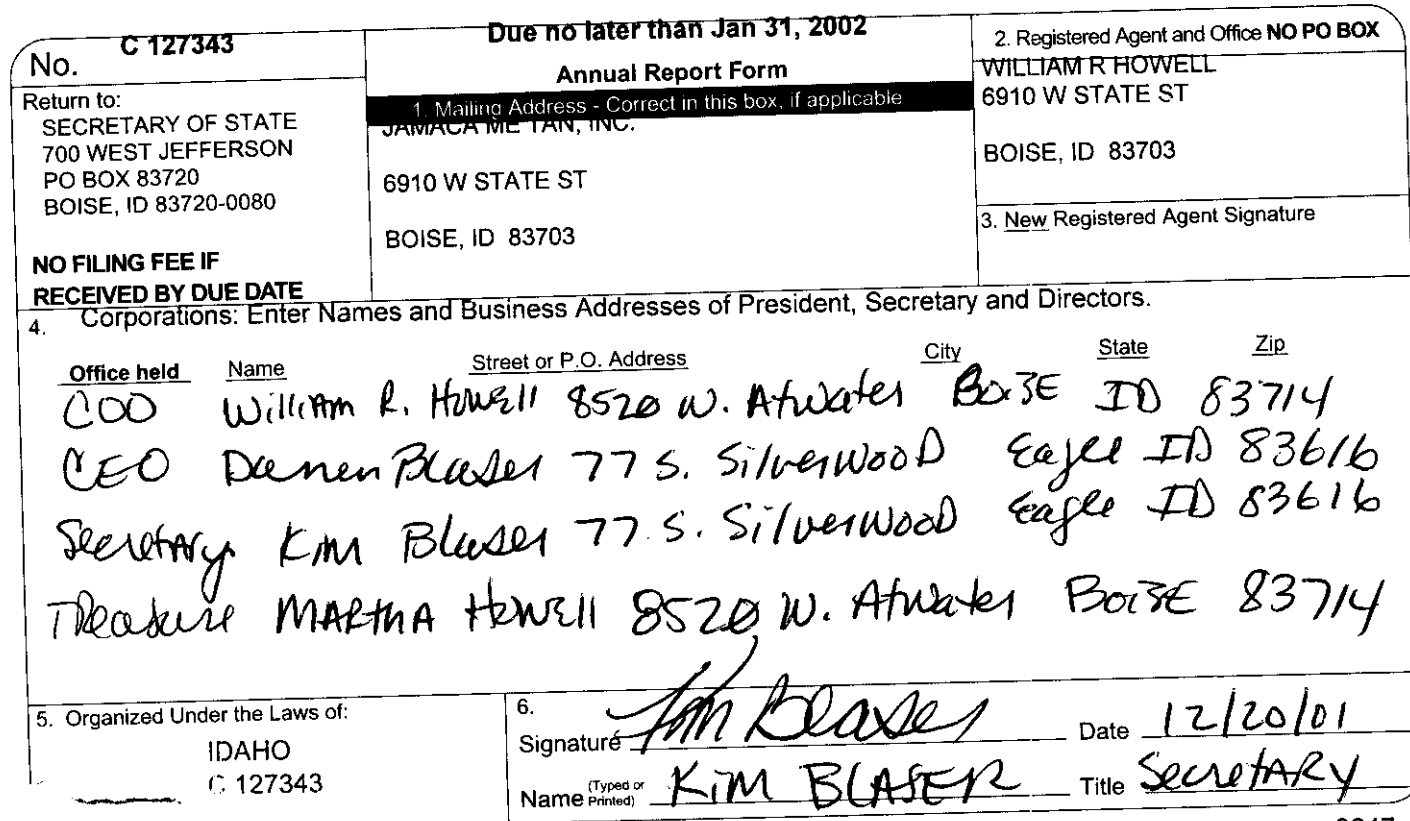 No. C 127343
Return to:
SECRETARY OF STATE
700 WEST JEFFERSON
PO BOX 83720
BOISE, ID 83720-0080
NO FILING FEE IF
RECEIVED BY DUE DATE
Due no later than Jan 31, 2002
Annual Report Form
1. Mailing Address - Correct in this box, if applicable
JAMACA ME TAN, INC.
6910 W STATE ST
BOISE, ID 83703
2. Registered Agent and Office NO PO BOX
WILLIAM R HOWELL
6910 W STATE ST
BOISE, ID 83703
3. New Registered Agent Signature
4. Corporations: Enter Names and Business Addresses of President, Secretary and Directors.
Office held Name Street or P.O. Address City State Zip
COO William R. Howell 8520 W. Atwater BOISE ID 83714
CEO Darren Blaser 77 S. SilverwooD Eagle ID 83616
Secretary Kim Blaser 77 S. SilverwooD Eagle ID 83616
Treasure MARTHA Howell 8520 W. Atwater BOISE 83714
5. Organized Under the Laws of:
IDAHO
C 127343
6.
Signature Kim Blaser Date 12/20/01
Name (Typed or Printed) KiM BLASER Title SecretARY